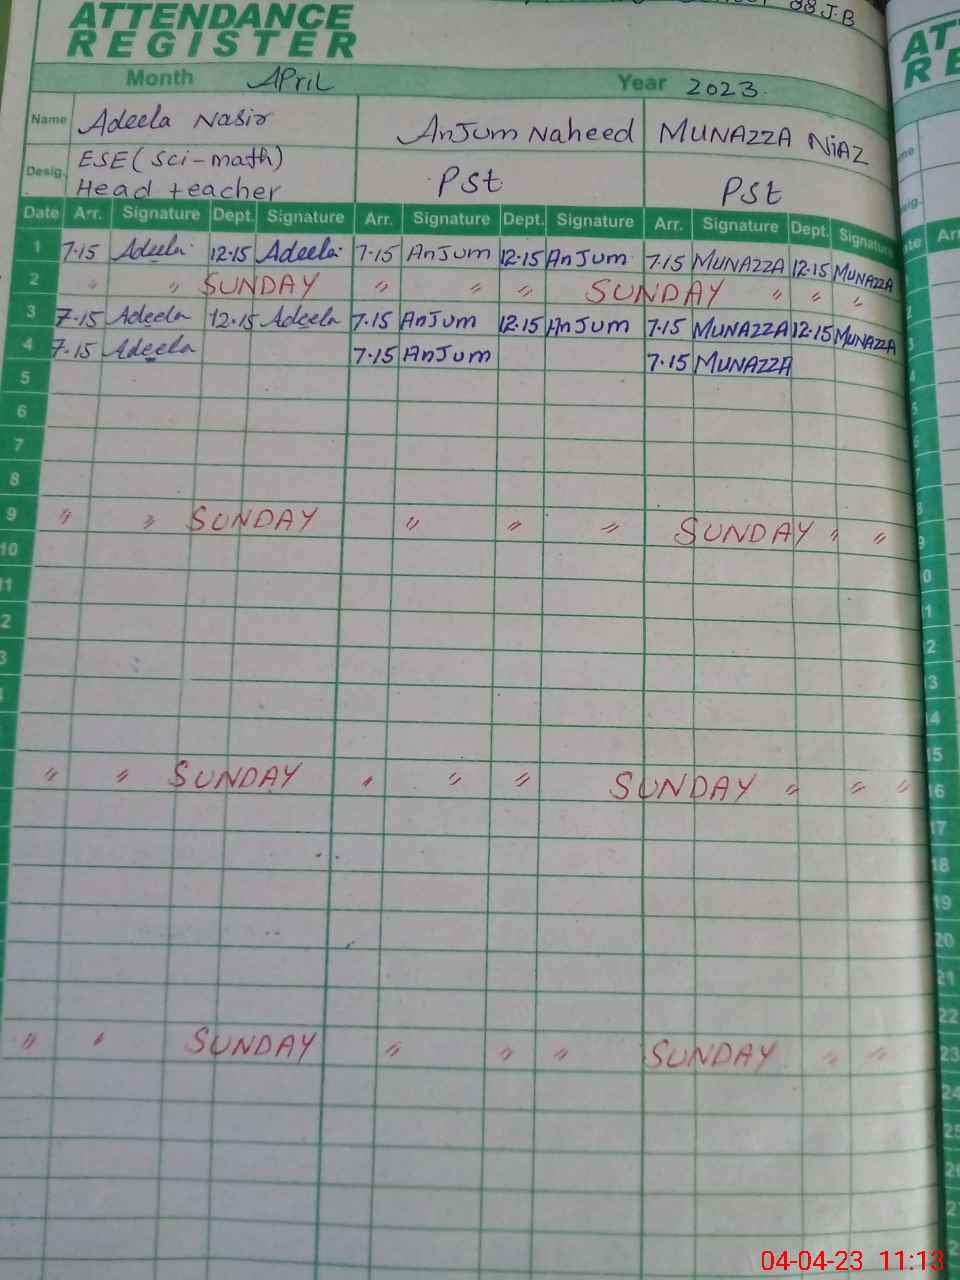 88 J.B
ATTENDANCE
REGISTER
Month April Year 2023
Name Adeela Nasir Anjum Naheed MUNAZZA NiAZ
Desig. ESE (Sci-math) Head teacher PSt PSt
Date Arr. Signature Dept. Signature Arr. Signature Dept. Signature Arr. Signature Dept. Signature
1 7.15 Adeela 12.15 Adeela 7.15 AnJum 12.15 AnJum 7.15 MUNAZZA 12.15 MUNAZZA
2 " " SUNDAY " " " SUNDAY " " "
3 7.15 Adeela 12.15 Adeela 7.15 AnJum 12.15 AnJum 7.15 MUNAZZA 12.15 MUNAZZA
4 7.15 Adeela 7.15 AnJum 7.15 MUNAZZA
5
6
7
8
9 " " SUNDAY " " " SUNDAY " "
10
11
2
3
" " SUNDAY " " " SUNDAY " " "
" " SUNDAY " " " SUNDAY " "
AT
RE
Arr
2
3
4
5
6
7
8
9
0
1
2
13
14
15
16
17
18
19
20
21
22
23
24
25
04-04-23 11:13